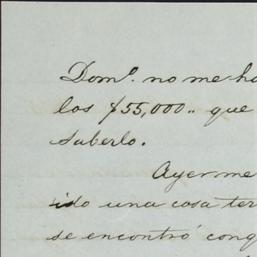 Domº. no me ha
los $55,000.. que
saberlo.
Ayer me
ido una cosa ter
se encontró conq